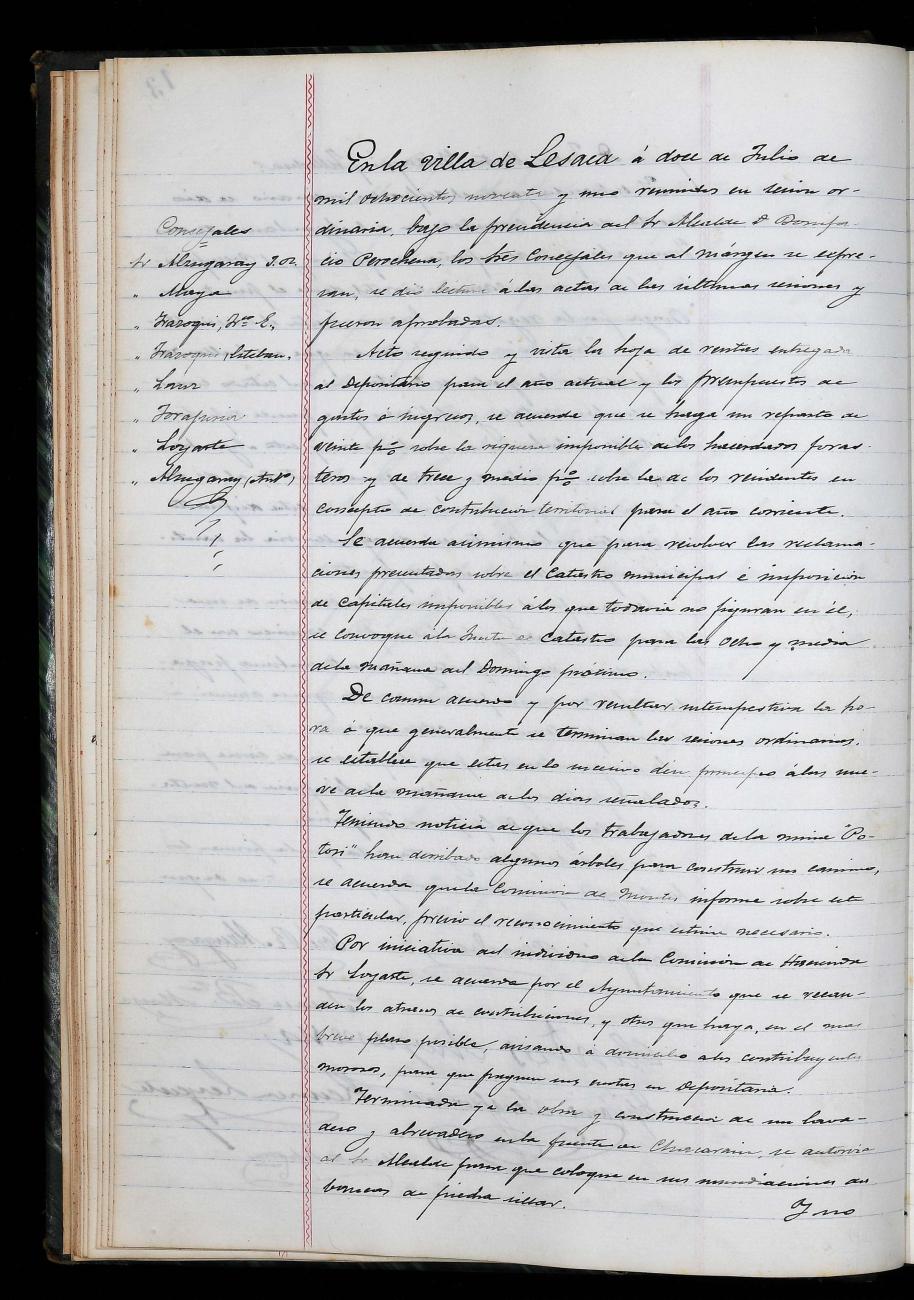 Consejales
Sr Alzugaray J. Oz.
" Maya
" Irazoqui, Fco E.,
" Irazoqui, Esteban,
"
"
" Loyarte
" Alzugaray (Anto)
En la villa de Lesaca á doce de Julio de
mil ochocientos noventa y uno reunidos en sesion or-
dinaria, bajo la presidencia del Sr Alcalde D Bonifa-
cio Perochena, los tres Concejales que al márgen se espre-
san, se dió lectura á las actas de las últimas sesiones y
fueron aprobadas.
Acto seguido y vista la hoja de rentas entregada
al Depositario para el año actual y los presupuestos de
gastos é ingresos, se acuerda que se haga un reparto de
veinte p% sobre la riqueza imponible de los hacendados foras
teros y de trece y medio p% sobre la de los residentes en
concepto de contribucion territorial para el año corriente.
Se acuerda asimismo que para resolver las reclama-
ciones presentadas sobre el Catastro municipal é imposicion
de capitales imponibles á los que todavia no figuran en él,
se convoque á la Junta de Catastro para las ocho y media
de la mañana del Domingo próximo.
De comun acuerdo y por resultar intempestiva la ho-
ra á que generalmente se terminan las sesiones ordinarias,
se establece que estas en lo sucesivo den principio á las nue-
ve de la mañana de los dias señalados.
Teniendo noticia de que los trabajadores de la mina "Po-
tosi" han derribado algunos árboles para construir un camino,
se acuerda que la Comision de Montes informe sobre este
particular, prévio el reconocimiento que estime necesario.
Por iniciativa del individuo de la Comision de Hacienda
Sr Loyarte, se acuerda por el Ayuntamiento que se recau-
den los atrasos de contribuciones, y otros que haya, en el mas
breve plazo posible, avisando á domicilio á los contribuyentes
morosos, para que paguen sus cuotas en Depositaria.
Terminada ya la obra y construccion de un lava-
dero y abrevadero en la fuente de se autoriza
al Sr Alcalde para que coloque en sus inmediaciones dos
bancos de piedra sillar.
Y no